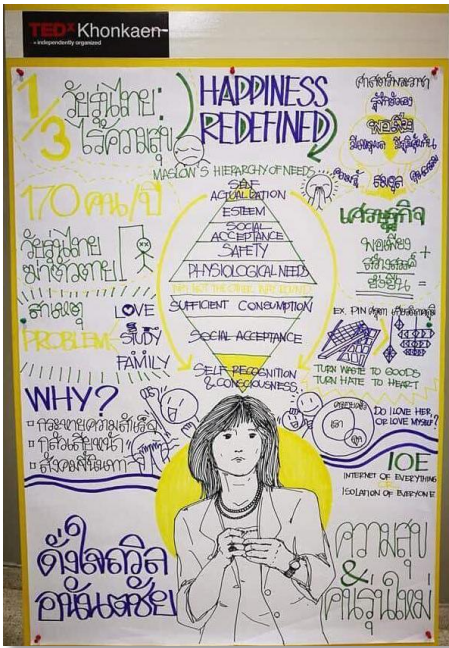 TEDx Khonkaen
x = independently organized
1/3
วัยรุ่นไทย:
ไร้ความสุข
HAPPINESS
REDEFINED
ศาสตร์พระราชา
รู้จักตัวเอง
พอเพียง
มีเหตุผล มีภูมิคุ้มกัน
ความรู้ คุณธรรม
MASLOW'S HIERARCHY OF NEEDS
SELF
ACTUALIZATION
ESTEEM
SOCIAL
ACCEPTANCE
SAFETY
PHYSIOLOGICAL NEEDS
WHY NOT THE OTHER WAY ROUND
SUFFICIENT CONSUMPTION
SOCIAL ACCEPTANCE
SELF RECOGNITION
& CONSCIOUSNESS
170 คน/ปี
วัยรุ่นไทย
ฆ่าตัวตาย
สาเหตุ
PROBLEMS
LOVE
STUDY
FAMILY
เศรษฐกิจ
พอเพียง +
สร้างสรรค์
ยั่งยืน =
EX. PIN
TURN WASTE TO GOODS
TURN HATE TO HEART
WHY?
กระหายความสำเร็จ
กลัวเสียหน้า
สังคมนินทา
DO I LOVE HER,
OR LOVE MYSELF?
IOE
INTERNET OF EVERYTHING
OR
ISOLATION OF EVERYONE
ดั่งใจถวิล
อนันตชัย
ความสุข
&
คนรุ่นใหม่